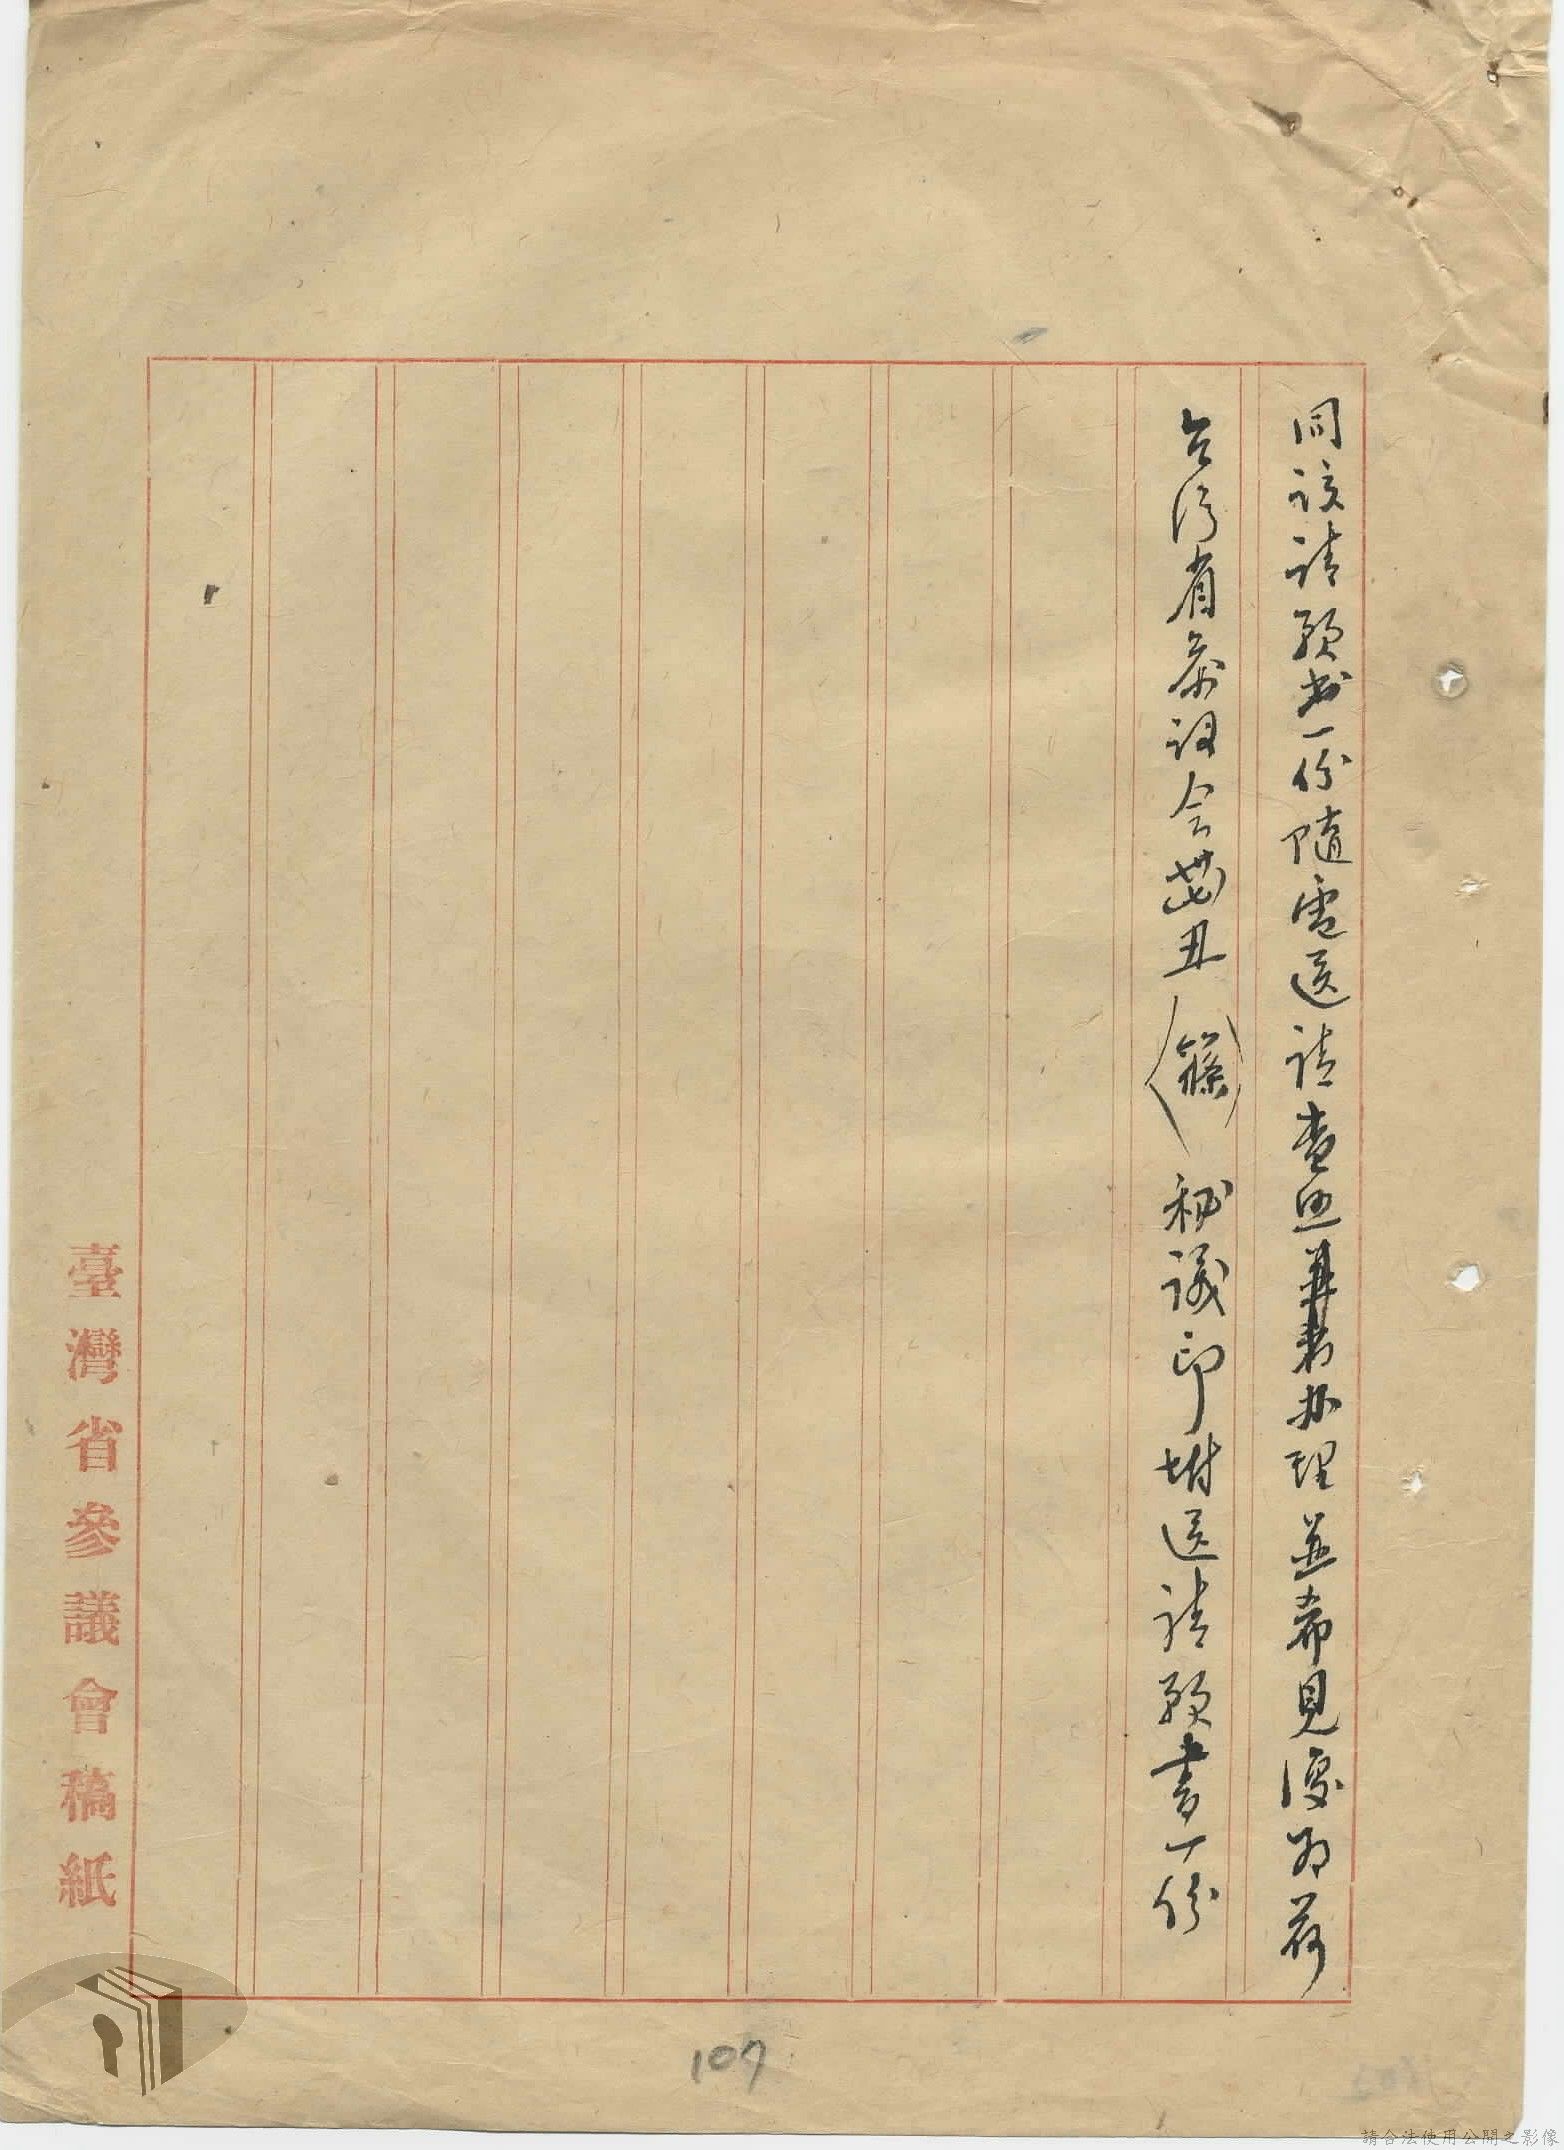 同該請願書一份隨電送請查照辦理並希見復為荷
台灣省參議会丑（篠）秘議印附送請願書一份
臺灣省參議會稿紙
107
請合法使用公開之影像